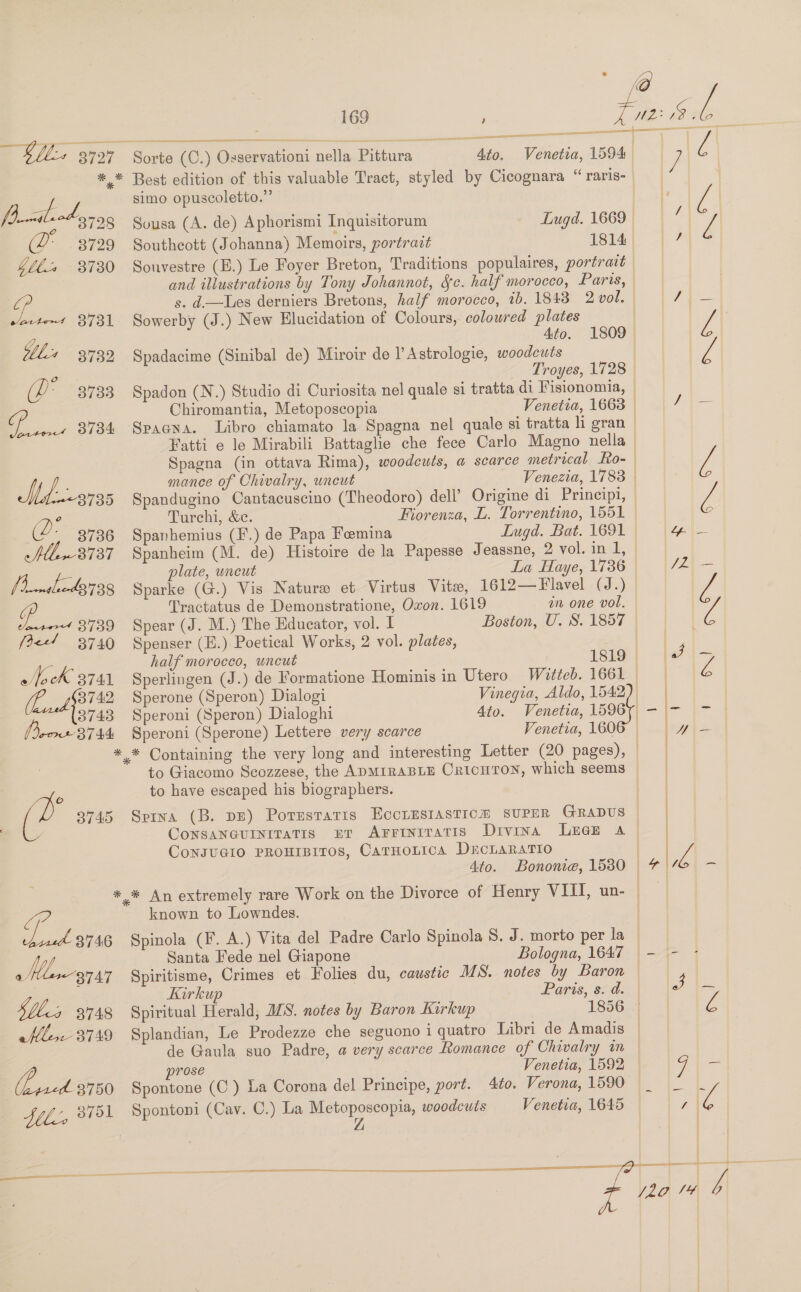 169
3727 Sorte (C.) Osservationi nella Pittura 4to. Venetia, 1594
*** Best edition of this valuable Tract, styled by Cicognara “raris-
simo opuscoletto.”
3728 Sousa (A. de) Aphorismi Inquisitorum Lugd. 1669
Do 3729 Southcott (Johanna) Memoirs, portrait 1814
Ellis 3730 Souvestre (E.) Le Foyer Breton, Traditions populaires, portrait
and illustrations by Tony Johannot, &c. half morocco, Paris,
s. d.—Les derniers Bretons, half morocco, ib. 1843 2 vol.
3731 Sowerby (J.) New Elucidation of Colours, coloured plates
4to. 1809
Ellis 3732 Spadacime (Sinibal de) Miroir de l'Astrologie, woodcuts
Troyes, 1728
Do 3733 Spadon (N.) Studio di Curiosita nel quale si tratta di Fisionomia,
Chiromantia, Metoposcopia Venetia, 1663
3734 SPAGNA. Libro chiamato la Spagna nel quale si tratta li gran
Fatti e le Mirabili Battaglie che fece Carlo Magno nella
Spagna (in ottava Rima), woodcuts, a scarce metrical Ro-
mance of Chivalry, uncut Venezia, 1783
3735 Spandugino Cantacuscino (Theodoro) dell' Origine di Principi,
Turchi, &c. Fiorenza, L. Torrentino, 1551
Do 3736 Spanhemius (F.) de Papa Fœmina Lugd. Bat. 1691
Allen 3737 Spanheim (M. de) Histoire de la Papesse Jeassne, 2 vol. in 1,
plate, uncut La Haye, 1736
3738 Sparke (G.) Vis Naturæ et Virtus Vitæ, 1612—Flavel (J.)
Tractatus de Demonstratione, Oxon. 1619 in one vol.
3739 Spear (J. M.) The Educator, vol. I Boston, U. S. 1857
3740 Spenser (E.) Poetical Works, 2 vol. plates,
half morocco, uncut 1819
3741 Sperlingen (J.) de Formatione Hominis in Utero Witteb. 1661
3742 Sperone (Speron) Dialogi Vinegia, Aldo, 1542
3743 Speroni (Speron) Dialoghi 4to. Venetia, 1596
3744 Speroni (Sperone) Lettere very scarce Venetia, 1606
*** Containing the very long and interesting Letter (20 pages),
to Giacomo Scozzese, the ADMIRABLE CRICHTON, which seems
to have escaped his biographers.
Do 3745 SPINA (B. DE) POTESTATIS ECCLESIASTICÆ SUPER GRADUS
CONSANGUINITATIS ET AFFINITATIS DIVINA LEGE A
CONJUGIO PROHIBITOS, CATHOLICA DECLARATIO
4to. Bononiæ, 1530
*** An extremely rare Work on the Divorce of Henry VIII, un-
known to Lowndes.
3746 Spinola (F. A.) Vita del Padre Carlo Spinola S. J. morto per la
Santa Fede nel Giapone Bologna, 1647
Allen 3747 Spiritisme, Crimes et Folies du, caustic MS. notes by Baron
Kirkup Paris, s. d.
Ellis 3748 Spiritual Herald, MS. notes by Baron Kirkup 1856
Allen 3749 Splandian, Le Prodezze che seguono i quatro Libri de Amadis
de Gaula suo Padre, a very scarce Romance of Chivalry in
prose Venetia, 1592
3750 Spontone (C) La Corona del Principe, port. 4to. Verona, 1590
Ellis 3751 Spontoni (Cav. C.) La Metoposcopia, woodcuts Venetia, 1645
Z